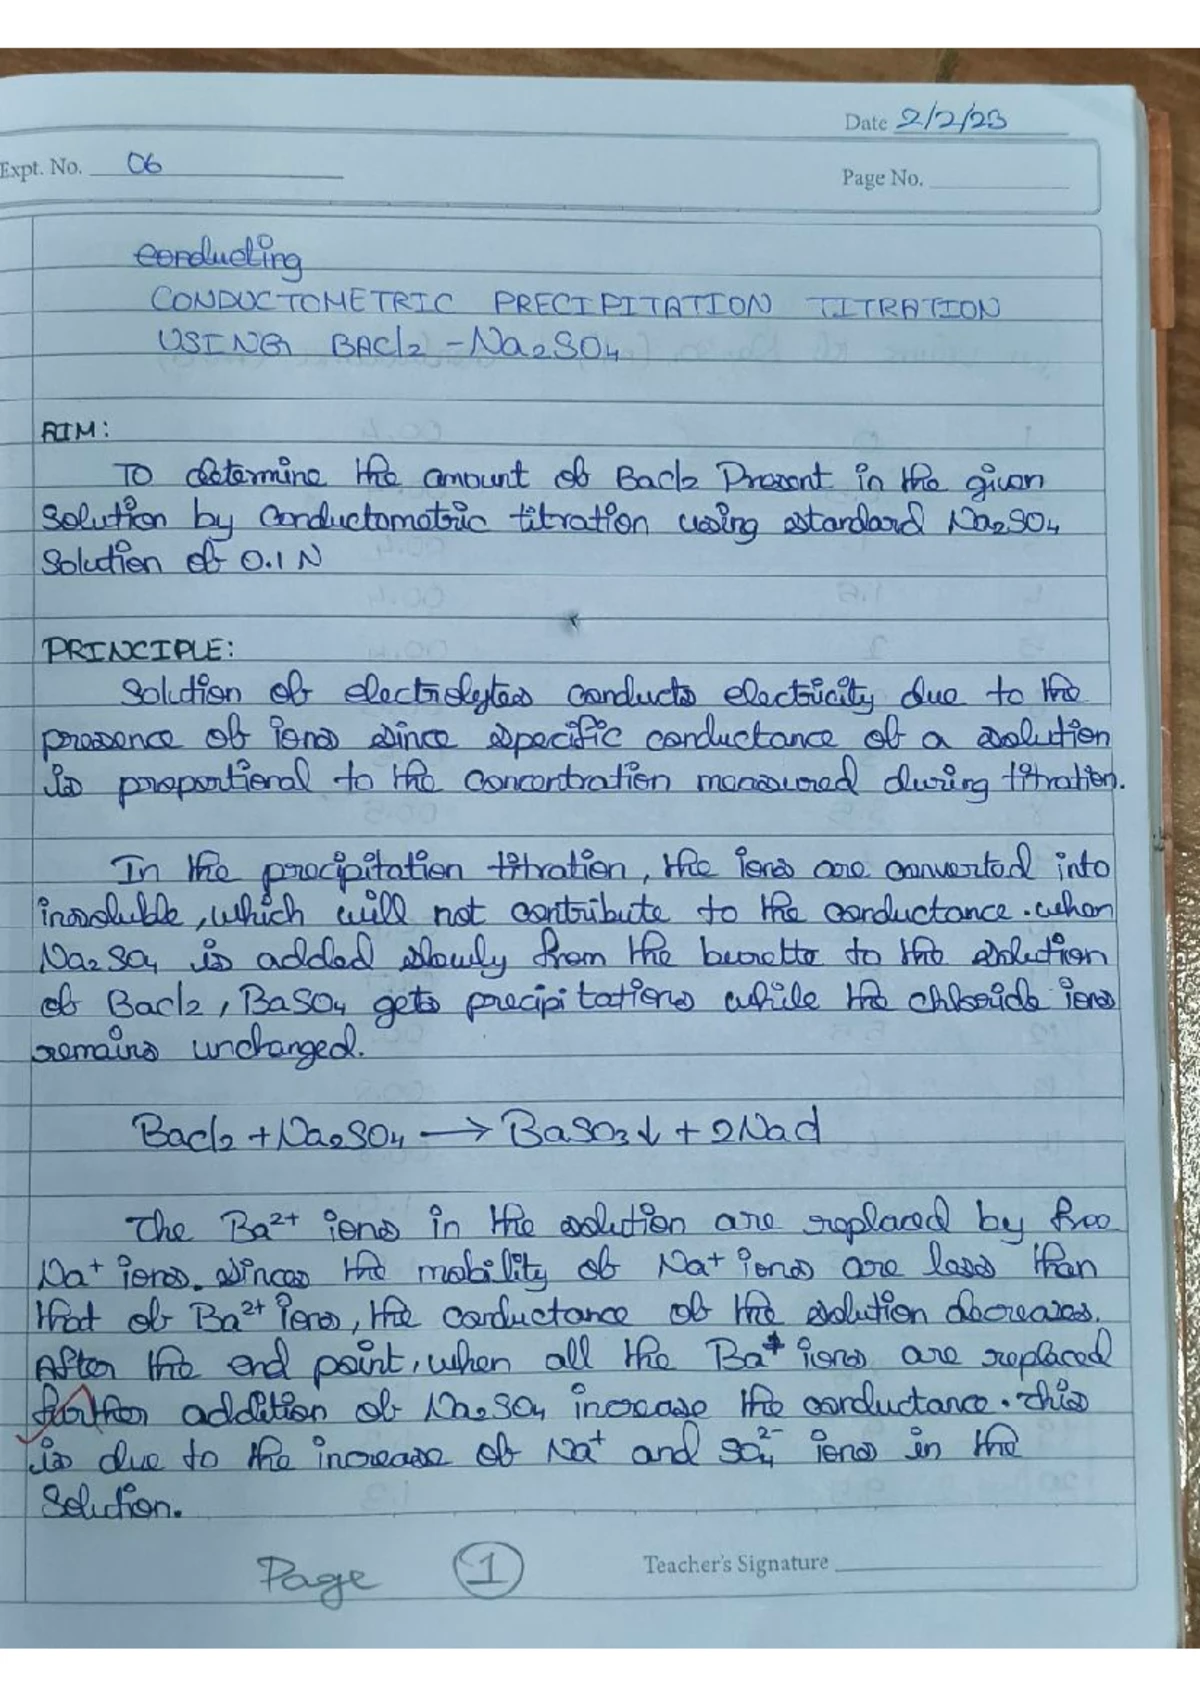 Date 2/2/23
Expt. No. 06
Page No.
conducting
CONDUCTOMETRIC PRECIPITATION TITRATION
USING BACl2 - Na2SO4
AIM:
TO determine the amount of Bacl2 Present in the given
Solution by Conductometric titration using standard Na2SO4
Solution of 0.1 N
PRINCIPLE:
Solution of electrolytes conducts electricity due to the
presence of ions since specific conductance of a solution
is proportional to the concentration measured during titration.
In the precipitation titration, the ions are converted into
insoluble, which will not contribute to the conductance. when
Na2SO4 is added slowly from the burette to the solution
of Bacl2, BaSO4 gets precipitations while the chloride ions
remains unchanged.
Bacl2 + Na2SO4 → BaSO3↓ + 2Nacl
The Ba²⁺ ions in the solution are replaced by free
Na⁺ ions. Sinces the mobility of Na⁺ ions are less than
that of Ba²⁺ ions, the conductance of the solution decreases.
After the end point, when all the Ba⁺ ions are replaced
further addition of Na2SO4 increase the conductance. this
is due to the increase of Na⁺ and SO4²⁻ ions in the
Solution.
Page 1
Teacher's Signature